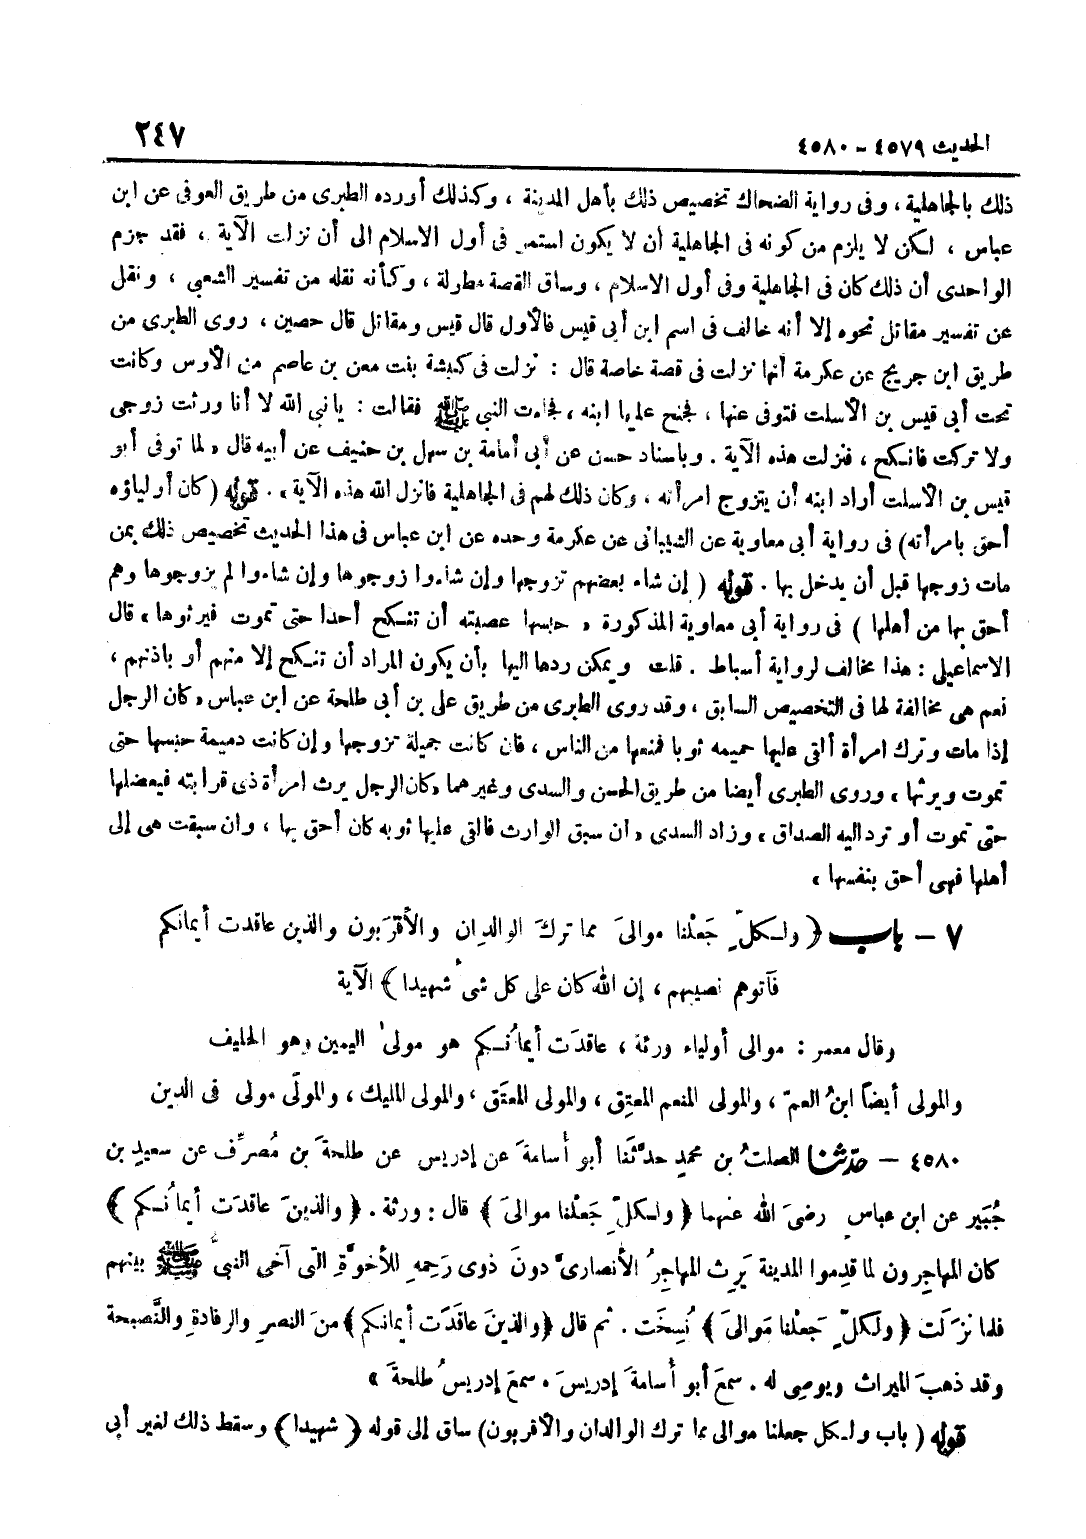 الحديث ٤٥٧٩ - ٤٥٨٠ ٢٤٧
ذلك بالجاهلية ، وفى رواية الضحاك تخصيص ذلك بأهل المدينة ، وكذلك أورده الطبرى من طريق العوفى عن ابن
عباس ، لكن لا يلزم من كونه فى الجاهلية أن لا يكون استمر فى أول الاسلام الى أن نزلت الآية ، فقد جزم
الواحدى أن ذلك كان فى الجاهلية وفى أول الاسلام ، وساق القصة مطولة ، وكأنه نقله من تفسير الشعبى ، ونقل
عن تفسير مقاتل نحوه إلا أنه خالف فى اسم ابن أبى قيس فالأول قال قيس ومقاتل قال حصين ، روى الطبرى من
طريق ابن جريج عن عكرمة أنها نزلت فى قصة خاصة قال : نزلت فى كبشة بنت معن بن عاصم من الأوس وكانت
تحت أبى قيس بن الأسلت فتوفى عنها ، فجنح عليها ابنه ، فجاءت النبى ﷺ فقالت : يا نبى الله لا أنا ورثت زوجى
ولا تركت فانكح ، فنزلت هذه الآية . وباسناد حسن عن أبى أمامة بن سهل بن حنيف عن أبيه قال « لما توفى أبو
قيس بن الأسلت أراد ابنه أن يتزوج امرأته ، وكان ذلك لهم فى الجاهلية فانزل الله هذه الآية » . قوله ( كان أولياؤه
أحق بامرأته) فى رواية أبى معاوية عن الشيبانى عن عكرمة وحده عن ابن عباس فى هذا الحديث تخصيص ذلك بمن
مات زوجها قبل أن يدخل بها . قوله ( إن شاء بعضهم تزوجها وإن شاءوا زوجوها وإن شاءوا لم يزوجوها وهم
أحق بها من أهلها ) فى رواية أبى معاوية المذكورة « حبسها عصبته أن تنكح أحدا حتى تموت فيرثوها » قال
الاسماعيلى : هذا مخالف لرواية أسباط . قلت ويمكن ردها اليها بأن يكون المراد أن تنكح إلا منهم أو باذنهم ،
نعم هى مخالفة لها فى التخصيص السابق ، وقد روى الطبرى من طريق على بن أبى طلحة عن ابن عباس « كان الرجل
إذا مات وترك امرأة ألقى عليها حميمه ثوبا فمنعها من الناس ، فان كانت جميلة تزوجها وإن كانت دميمة حبسها حتى
تموت ويرثها » وروى الطبرى أيضا من طريق الحسن والسدى وغيرهما « كان الرجل يرث امرأة ذى قرابته فيعضلها
حتى تموت أو ترد اليه الصداق » وزاد السدى « ان سبق الوارث فالقى عليها ثوبه كان أحق بها ، وان سبقت هى إلى
أهلها فهى أحق بنفسها »
٧ - باب ﴿ ولكلٍّ جَعلْنا موالىَ مما تركَ الوالدان والأقرَبون والذين عاقدت أيمانكم
فآتوهم نصيبهم ، إن الله كان على كل شىء شهيدا ﴾ الآية
وقال معمر : موالى أولياء ورثة ، عاقدَت أيمانُكم هو مولى اليمين وهو الحليف
والمولى أيضاً ابنُ العمّ ، والمولى المنعم المعتِق ، والمولى المعتَق ، والمولى المليك ، والمولى مولى فى الدين
٤٥٨٠ - حدّثنا الصلتُ بن محمدٍ حدَّثَنا أبو أُسامةَ عن إدريس عن طلحةَ بن مُصرِّف عن سعيدٍ بن
جُبَير عن ابن عباس رضىَ الله عنهما ﴿ ولكلٍّ جَعلْنا موالىَ ﴾ قال : ورثة . ﴿ والذينَ عاقدَت أيمانُكم ﴾
كان المهاجرون لما قدِموا المدينة يَرِث المهاجرُ الأنصارىَّ دونَ ذوى رَحِمهِ للأخوَّةِ التى آخى النبىُّ ﷺ بينهم
فلما نزَلَت ﴿ ولكلٍّ جَعلْنا مَوالىَ ﴾ نُسِخَت . ثم قال ﴿والذينَ عاقَدَت أيمانكم﴾ منَ النصرِ والرفادةِ والنَّصيحة
وقد ذهبَ الميراث ويوصِى له . سمعَ أبو أسامةَ إدريسَ . سمعَ إدريسُ طلحةَ »
قوله ( باب ولكل جعلنا موالى مما ترك الوالدان والأقربون) ساق إلى قوله ( شهيدا ) وسقط ذلك لغير أبى